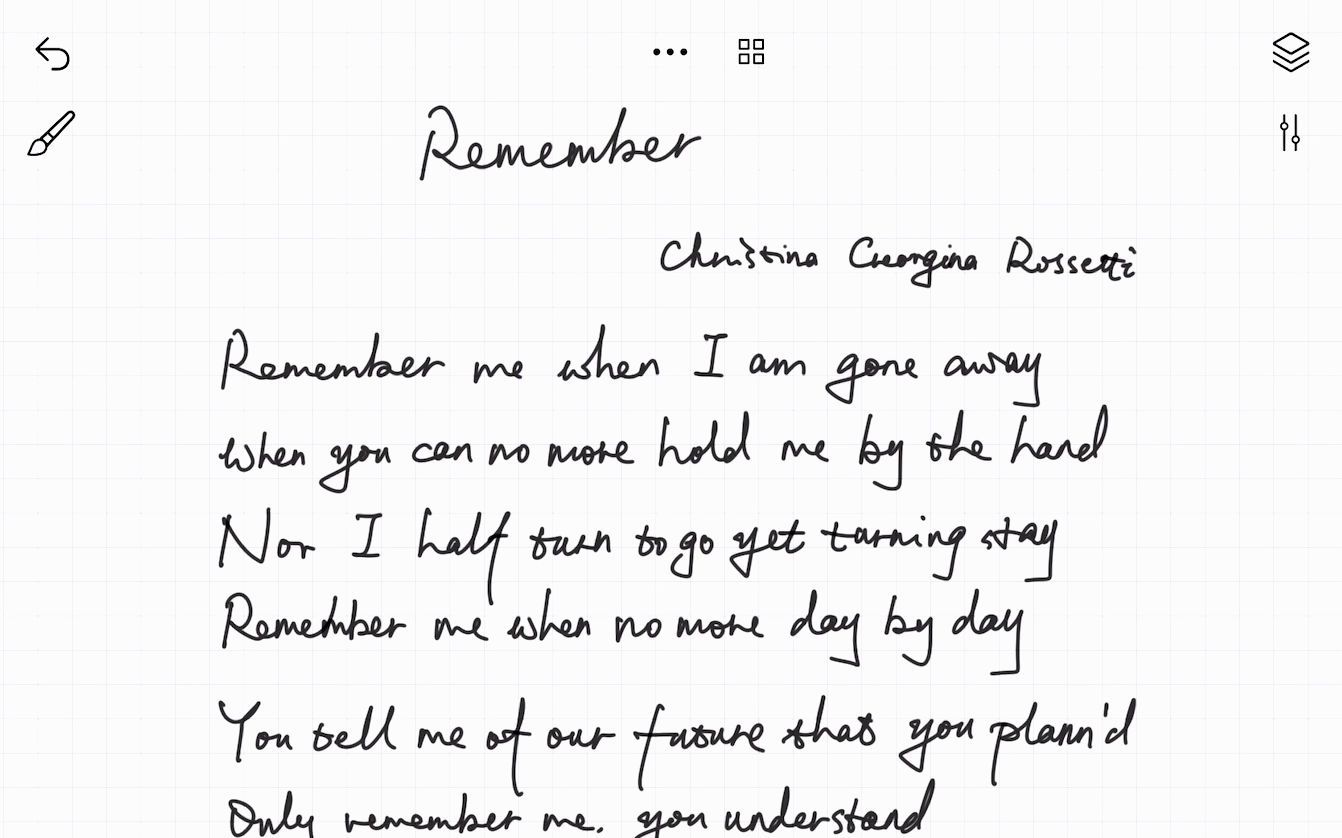 Remember
Christina Georgina Rossetti
Remember me when I am gone away
when you can no more hold me by the hand
Nor I half turn to go yet turning stay
Remember me when no more day by day
You tell me of our future that you plann'd
Only remember me. you understand